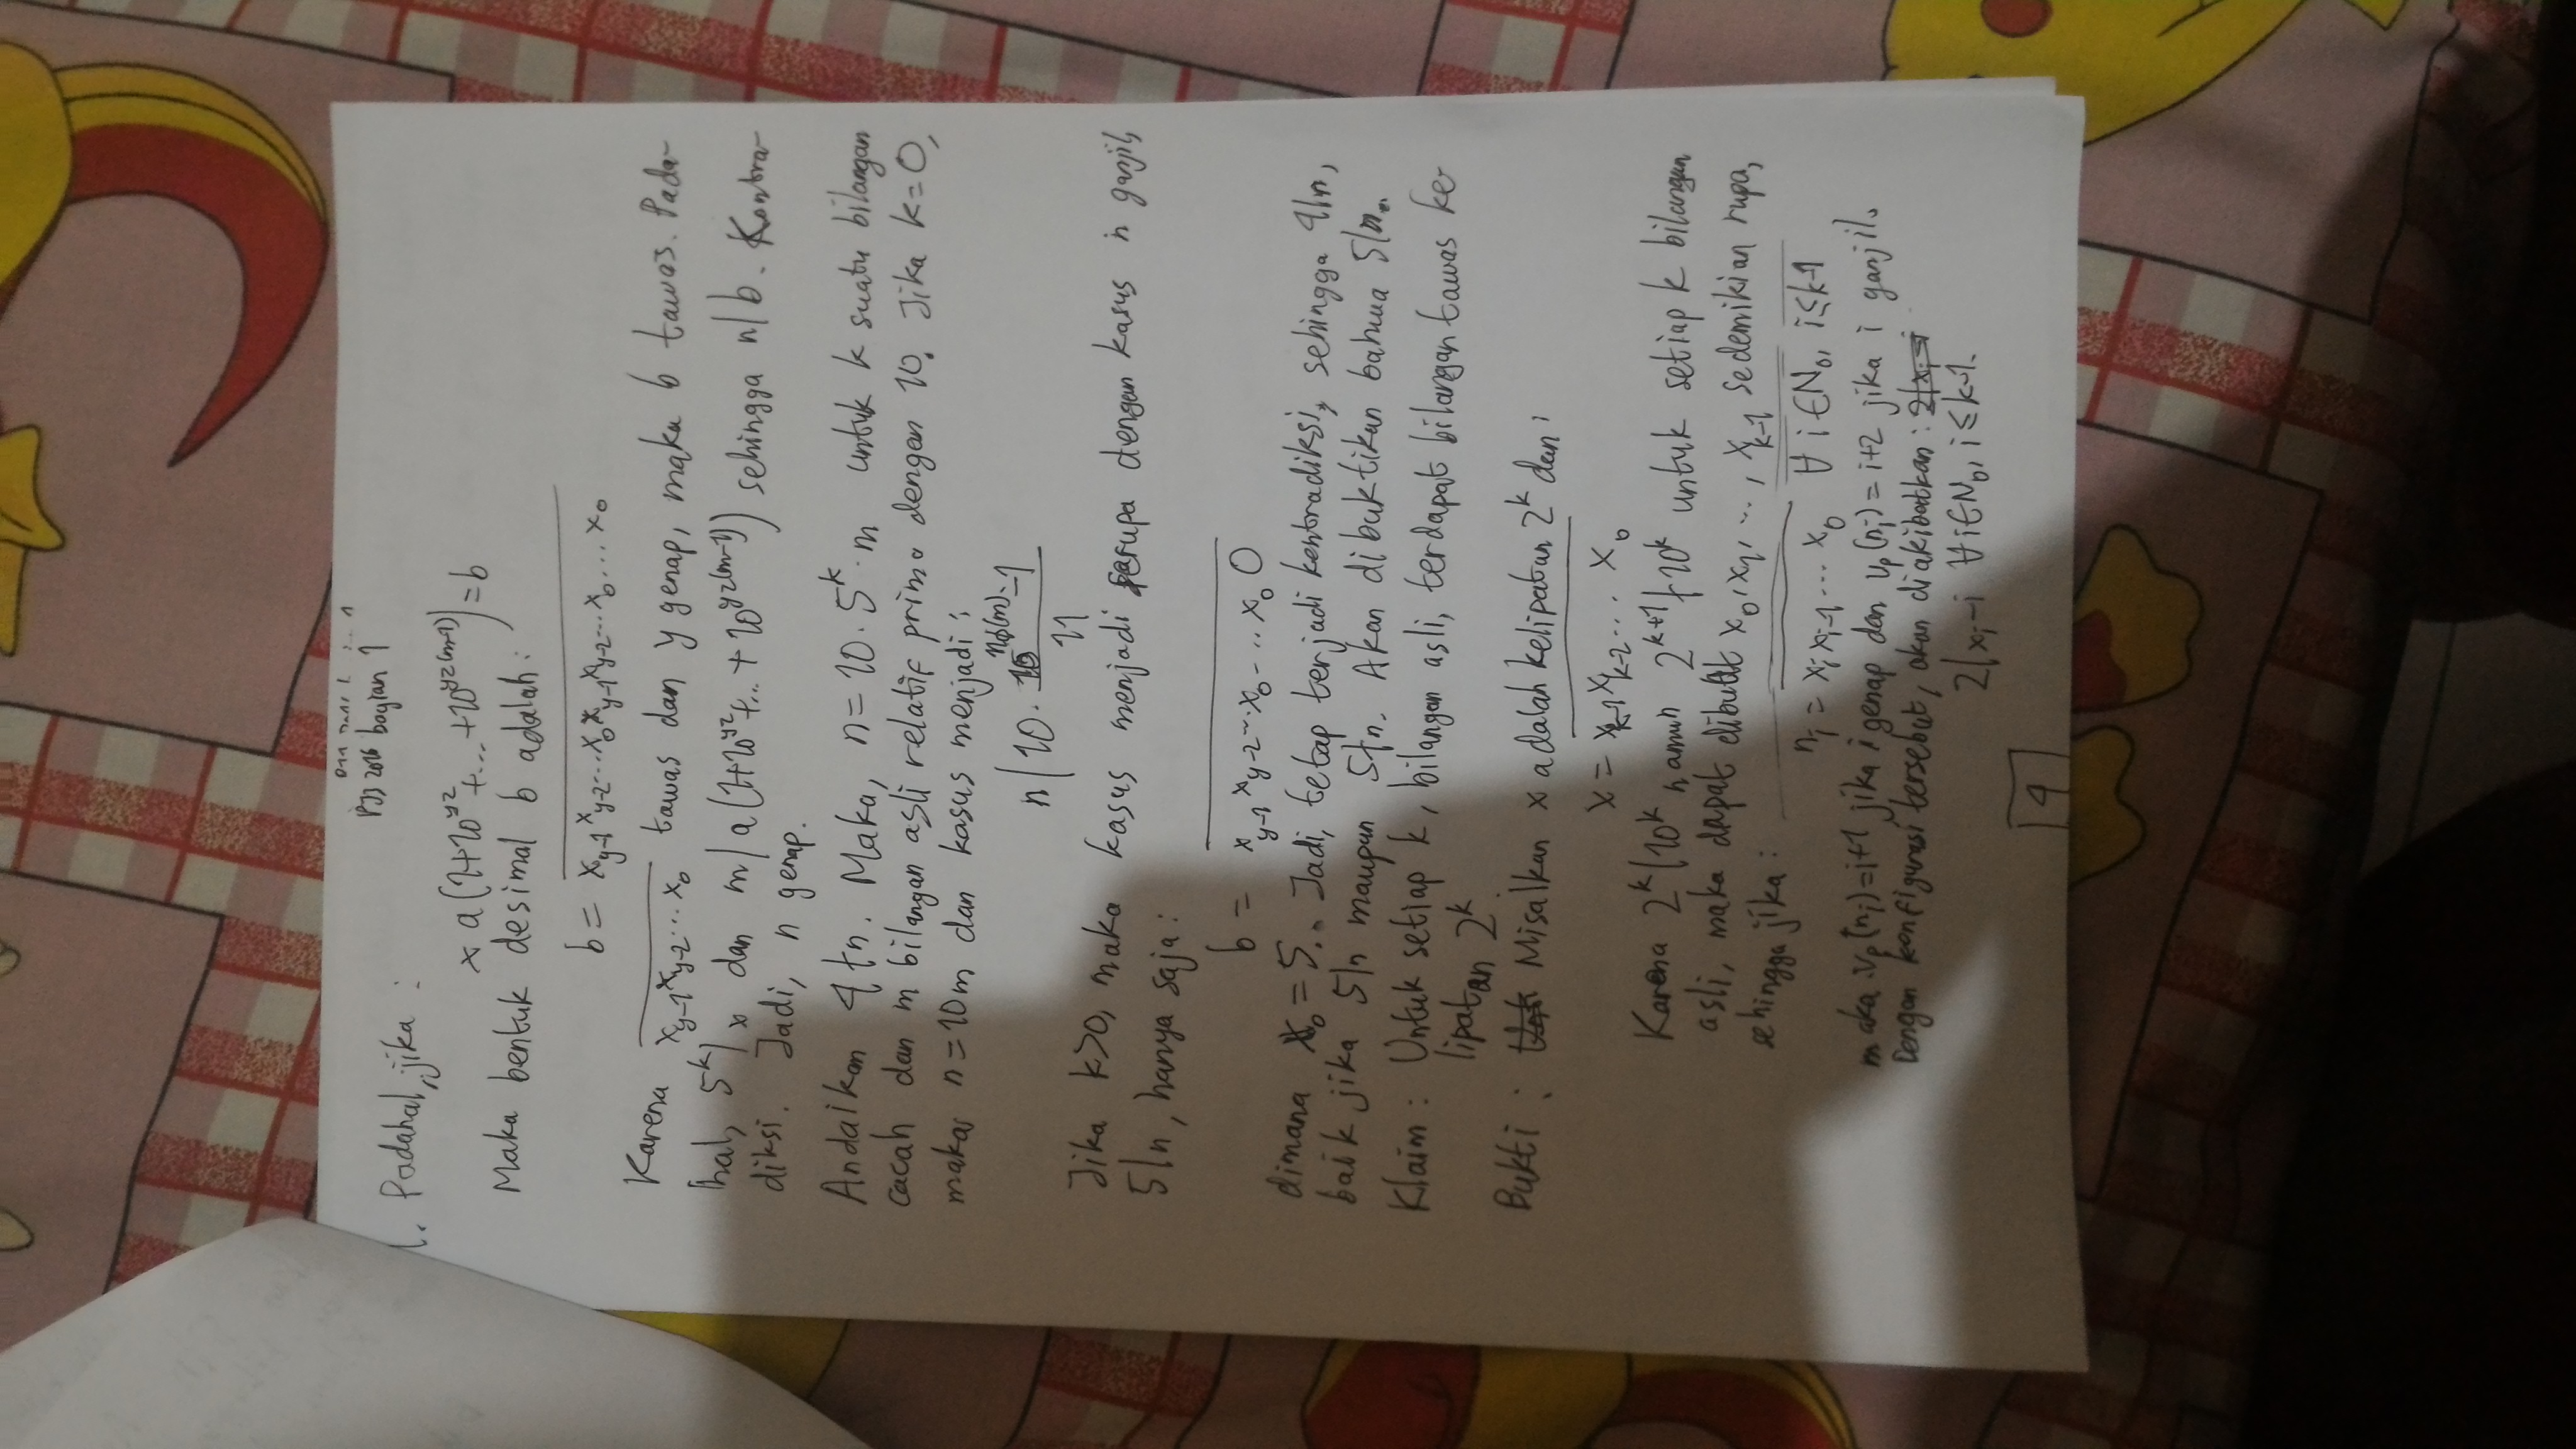 PJJ 2016 bagian 1
1. Padahal, jika :
x a(1+10^{yz}+...+10^{yz(m-1)})=b
Maka bentuk desimal b adalah:
b = x_{y-1}x_{y-2}...x_0x_{y-1}x_{y-2}...x_0...x_0
Karena x_{y-1}x_{y-2}...x_0 tawas dan y genap, maka b tawas. Pada-
hal, 5^k|x dan m|a(1+10^{yz}+...+10^{yz(m-1)}) sehingga n|b. Kontra-
diksi. Jadi, n genap.
Andaikan 4∤n. Maka, n=10.5^k.m untuk k suatu bilangan
cacah dan m bilangan asli relatif prima dengan 10. Jika k=0,
maka n=10m dan kasus menjadi:
n|10. \frac{10^{nϕ(m)}-1}{11}
Jika k>0, maka kasus menjadi serupa dengan kasus n ganjil,
5|n, hanya saja:
b = x_{y-1}x_{y-2}...x_0...x_0 0
dimana x_0=5. Jadi, tetap terjadi kontradiksi, sehingga 4|n,
baik jika 5|n maupun 5∤n. Akan dibuktikan bahwa 5|n.
Klaim : Untuk setiap k, bilangan asli, terdapat bilangan tawas ke-
lipatan 2^k.
Bukti : Misalkan x adalah kelipatan 2^k dan:
x = x_{k-1}x_{k-2}... x_0
Karena 2^k|10^k namun 2^{k+1}∤10^k untuk setiap k bilangan
asli, maka dapat dibuat x_0,x_1,...,x_{k-1} sedemikian rupa,
sehingga jika:
n_i = x_ix_{i-1}...x_0 ∀i∈N_0, i≤k-1
maka v_p(n_i)=i+1 jika i genap dan v_p(n_i)=i+2 jika i ganjil.
Dengan konfigurasi tersebut, akan diakibatkan:
2|x_i-i ∀i∈N_0, i≤k-1.
4